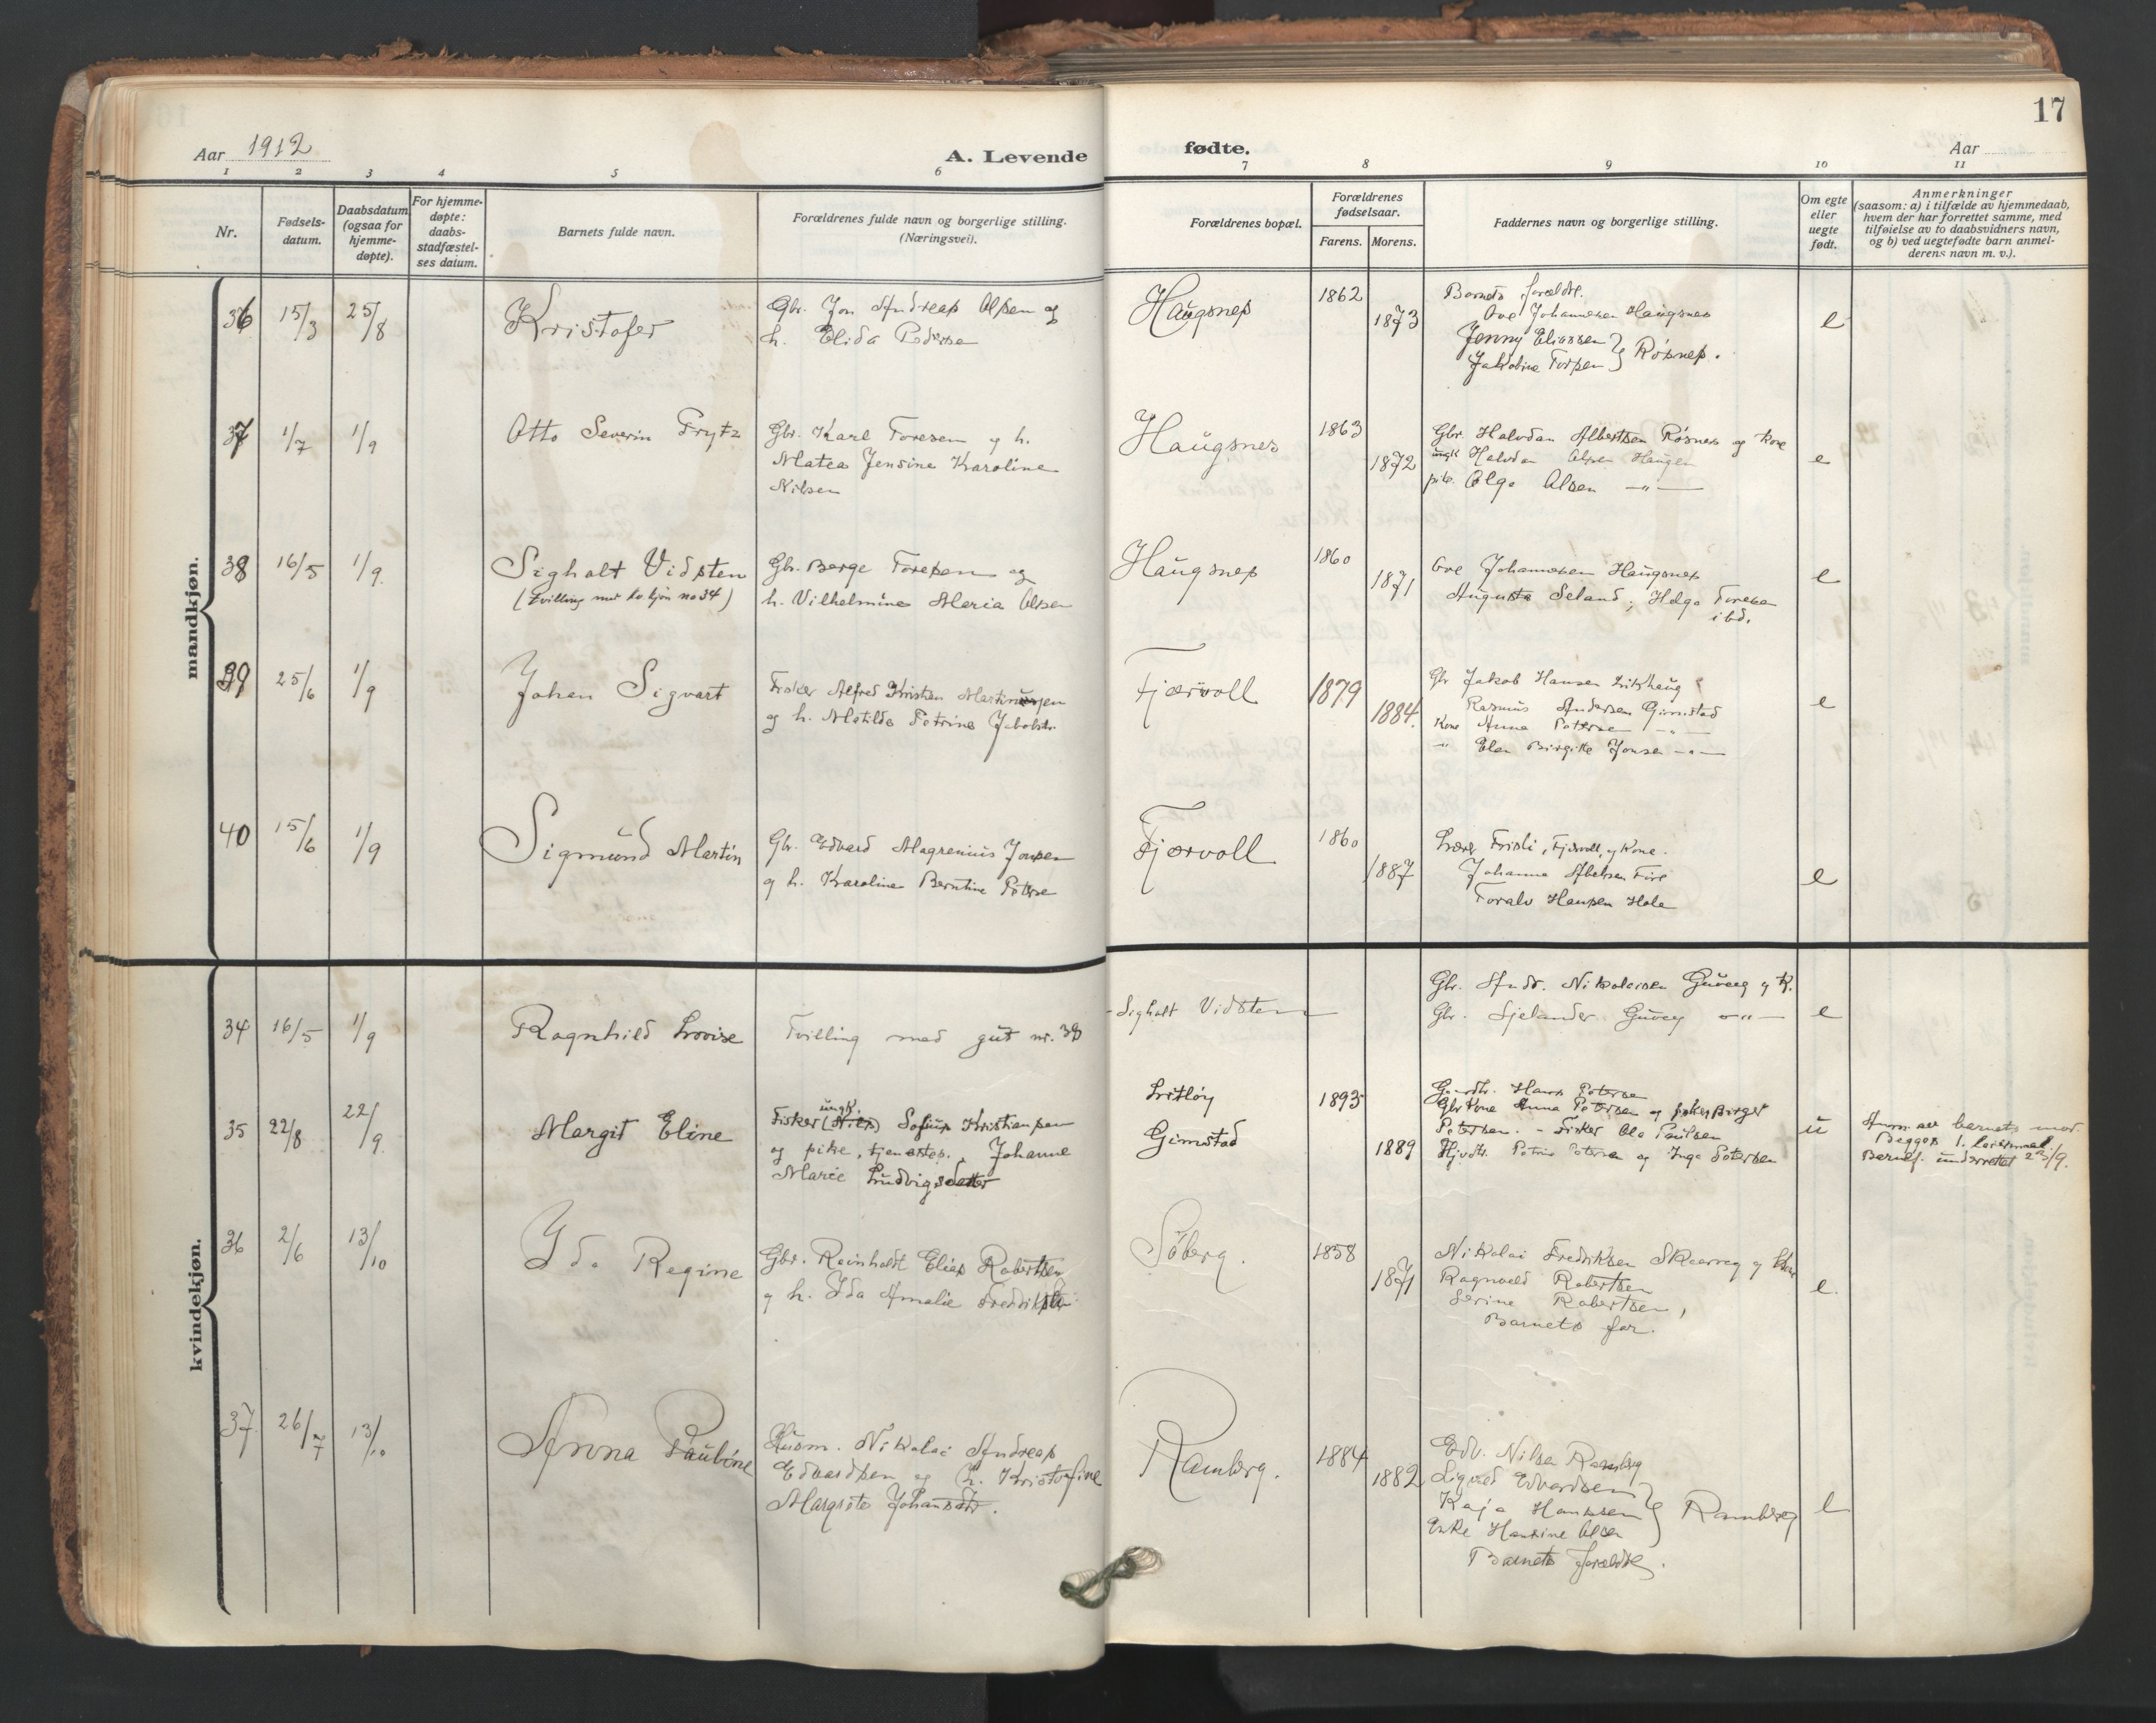 17
Aar 1912
A. Levende
fødte.
Aar
1 2 3 4 5 6 7 8 9 10 11
Nr.
Fødsels-
datum.
Daabsdatum
(ogsaa for
hjemme-
døpte).
For hjemme-
døpte:
daabs-
stadfæstel-
ses datum.
Barnets fulde navn.
Forældrenes fulde navn og borgerlige stilling.
(Næringsvei).
Forældrenes bopæl.
Forældrenes
fødselsaar.
Farens. Morens.
Faddernes navn og borgerlige stilling.
Om egte
eller
uegte
født.
Anmerkninger
(saasom: a) i tilfælde av hjemmedaab,
hvem der har forrettet samme, med
tilføielse av to daabsvidners navn,
og b) ved uegtefødte barn anmel-
derens navn m. v.).
mandkjøn.
36 15/3 25/8
Kristofer
Gbr. Jon Andreas Olsen og
h. Elida Pederse
Haugsnes
1862
1873
Barnets forældre.
Ove Johannesen Haugsnes
Jenny Eliassen
Jakobine Torsen } Røsnes.
e
37 1/7 1/9
Otto Severin Frytz
Gbr. Karl Toresen og h.
Matea Jensine Karoline
Nilsen
Haugsnes
1863
1872
Gbr. Halvdan Albertsen Røsnes og kone
ungk Halvdan Olsen Haugen
pike Olga Olsen -"-
e
38 16/5 1/9
Sighalt Vidsten
(Tvilling med kv kjøn no 34)
Gbr. Berge Toresen og
h. Vilhelmine Maria Olsen
Haugsnes
1860
1871
Ove Johannesen Haugsnes
Augusta Seland; Helga Toresen
ibd.
e
39 25/6 1/9
Johan Sigvart
Fisker Alfred Kristian Martinussen
og h. Matilde Petrine Jakobsdtr.
Fjærvoll
1879
1884.
Gbr Jakob Hansen
Rasmus Andersen Gimstad
Kone Anna Peterse -"-
" Elen Birgitte Jonsen -"-
e
40 15/6 1/9
Sigmund Martin
Gbr. Edvard Magrenius Jonsen
og h. Karoline Berntine Peterse
Fjærvoll
1860
1887
Lærer Frisli, Fjærvoll, og kone.
Johanna Abelsen Fire
Toralv Hansen Hole
e
kvindekjøn.
34 16/5 1/9
Ragnhild Lovise
Tvilling med gut nr. 38
Sighalt Vidsten
Gbr. Andr. Nikolaisen Guveeg og K.
Gbr. Sjelander Guveg -"-
e
35 22/8 22/9
Margit Eline
ungk.
Fisker Sofus Kristiansen
og pike, tjenestep. Johanne
Marie Ludvigsdatter
Litløy
Gimstad
1893
1889
Gaardbr. Hans Petersen
Gbr kone Anna Petersen og fisker Birger
Petersen. - Fisker Ole Paulsen
Petrine Petersen og Inga Petersen
u
Anm. av barnets mor
Begges 1. leiermaal
Bernef. underrettet 23/9.
36 2/6 13/10
Ida Regine
Gbr. Reinholdt Elias Robertsen
og h. Ida Amalie Fredriksen
Söberg.
1858
1871
Nikolai Fredriksen Skarveg og kone
Ragnvald Robertsen
Serine Robertsen,
Barnets far.
e.
37 26/7 13/10
Anna Pauline
Husm. Nikolai Andreas
Edvardsen og h. Kristofine
Margrete Johansdtr.
Ramberg.
1884
1882
Edv. Nilsen Ramberg
Sigvald Edvardsen
Kaja Hanssen
Enke Hansine Olsen } Ramberg
Barnets forældre.
e